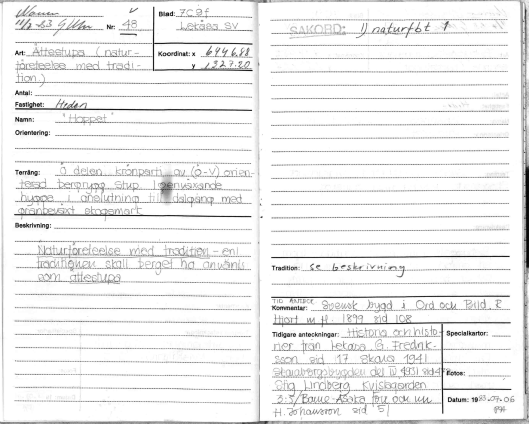 11/2-83
Nr: 48
Blad: 7C8f
Lekåsa SV
Art: Ättestupa (natur-
företeelse med tradi-
tion.)
Koordinat: x 6446.88
y 1327.20
Antal:
Fastighet: Hedan
Namn: "Hoppet"
Orientering:
Terräng: Ö delen krönparti av (Ö-V) orien-
terad bergrygg. Stup. I genväxande
hygge i anslutning till dalgång med
granbeväxt skogsmark
Beskrivning:
Naturföreteelse med tradition - enl
traditionen skall berget ha använts
som ättestupa
SAKORD: 1) naturföt 1
Tradition: se beskrivning
Kommentar: Svensk bygd i Ord och Bild. R
Hjort m.fl. 1899 sid 108
Tidigare anteckningar: Historia och histo-
rier från Lekåsa G. Fredrik-
sson sid 17 Skara 1941
Stig Lindberg
H. Johansson sid 51
Specialkartor:
Fotos:
Datum: 1983-07-06